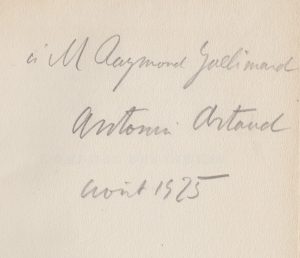 à M Raymond Gallimard
Antonin Artaud
août 1925